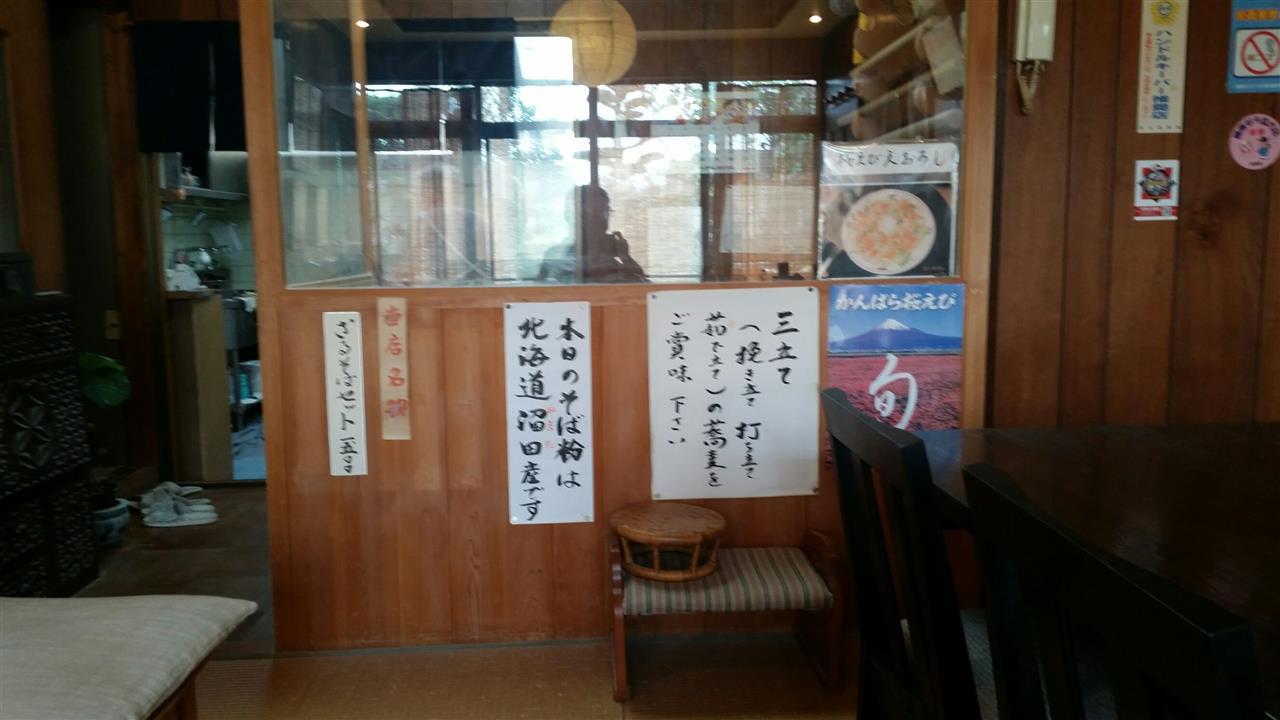 三立て
(挽き立て 打ち立て
茹で立て)の蕎麦を
ご賞味 下さい
本日のそば粉は
北海道沼田産です
ぬまた
当店名物
ざるそばセット
桜えびえおあし
かんばら桜えび
旬
ハンドルキーパー推進店